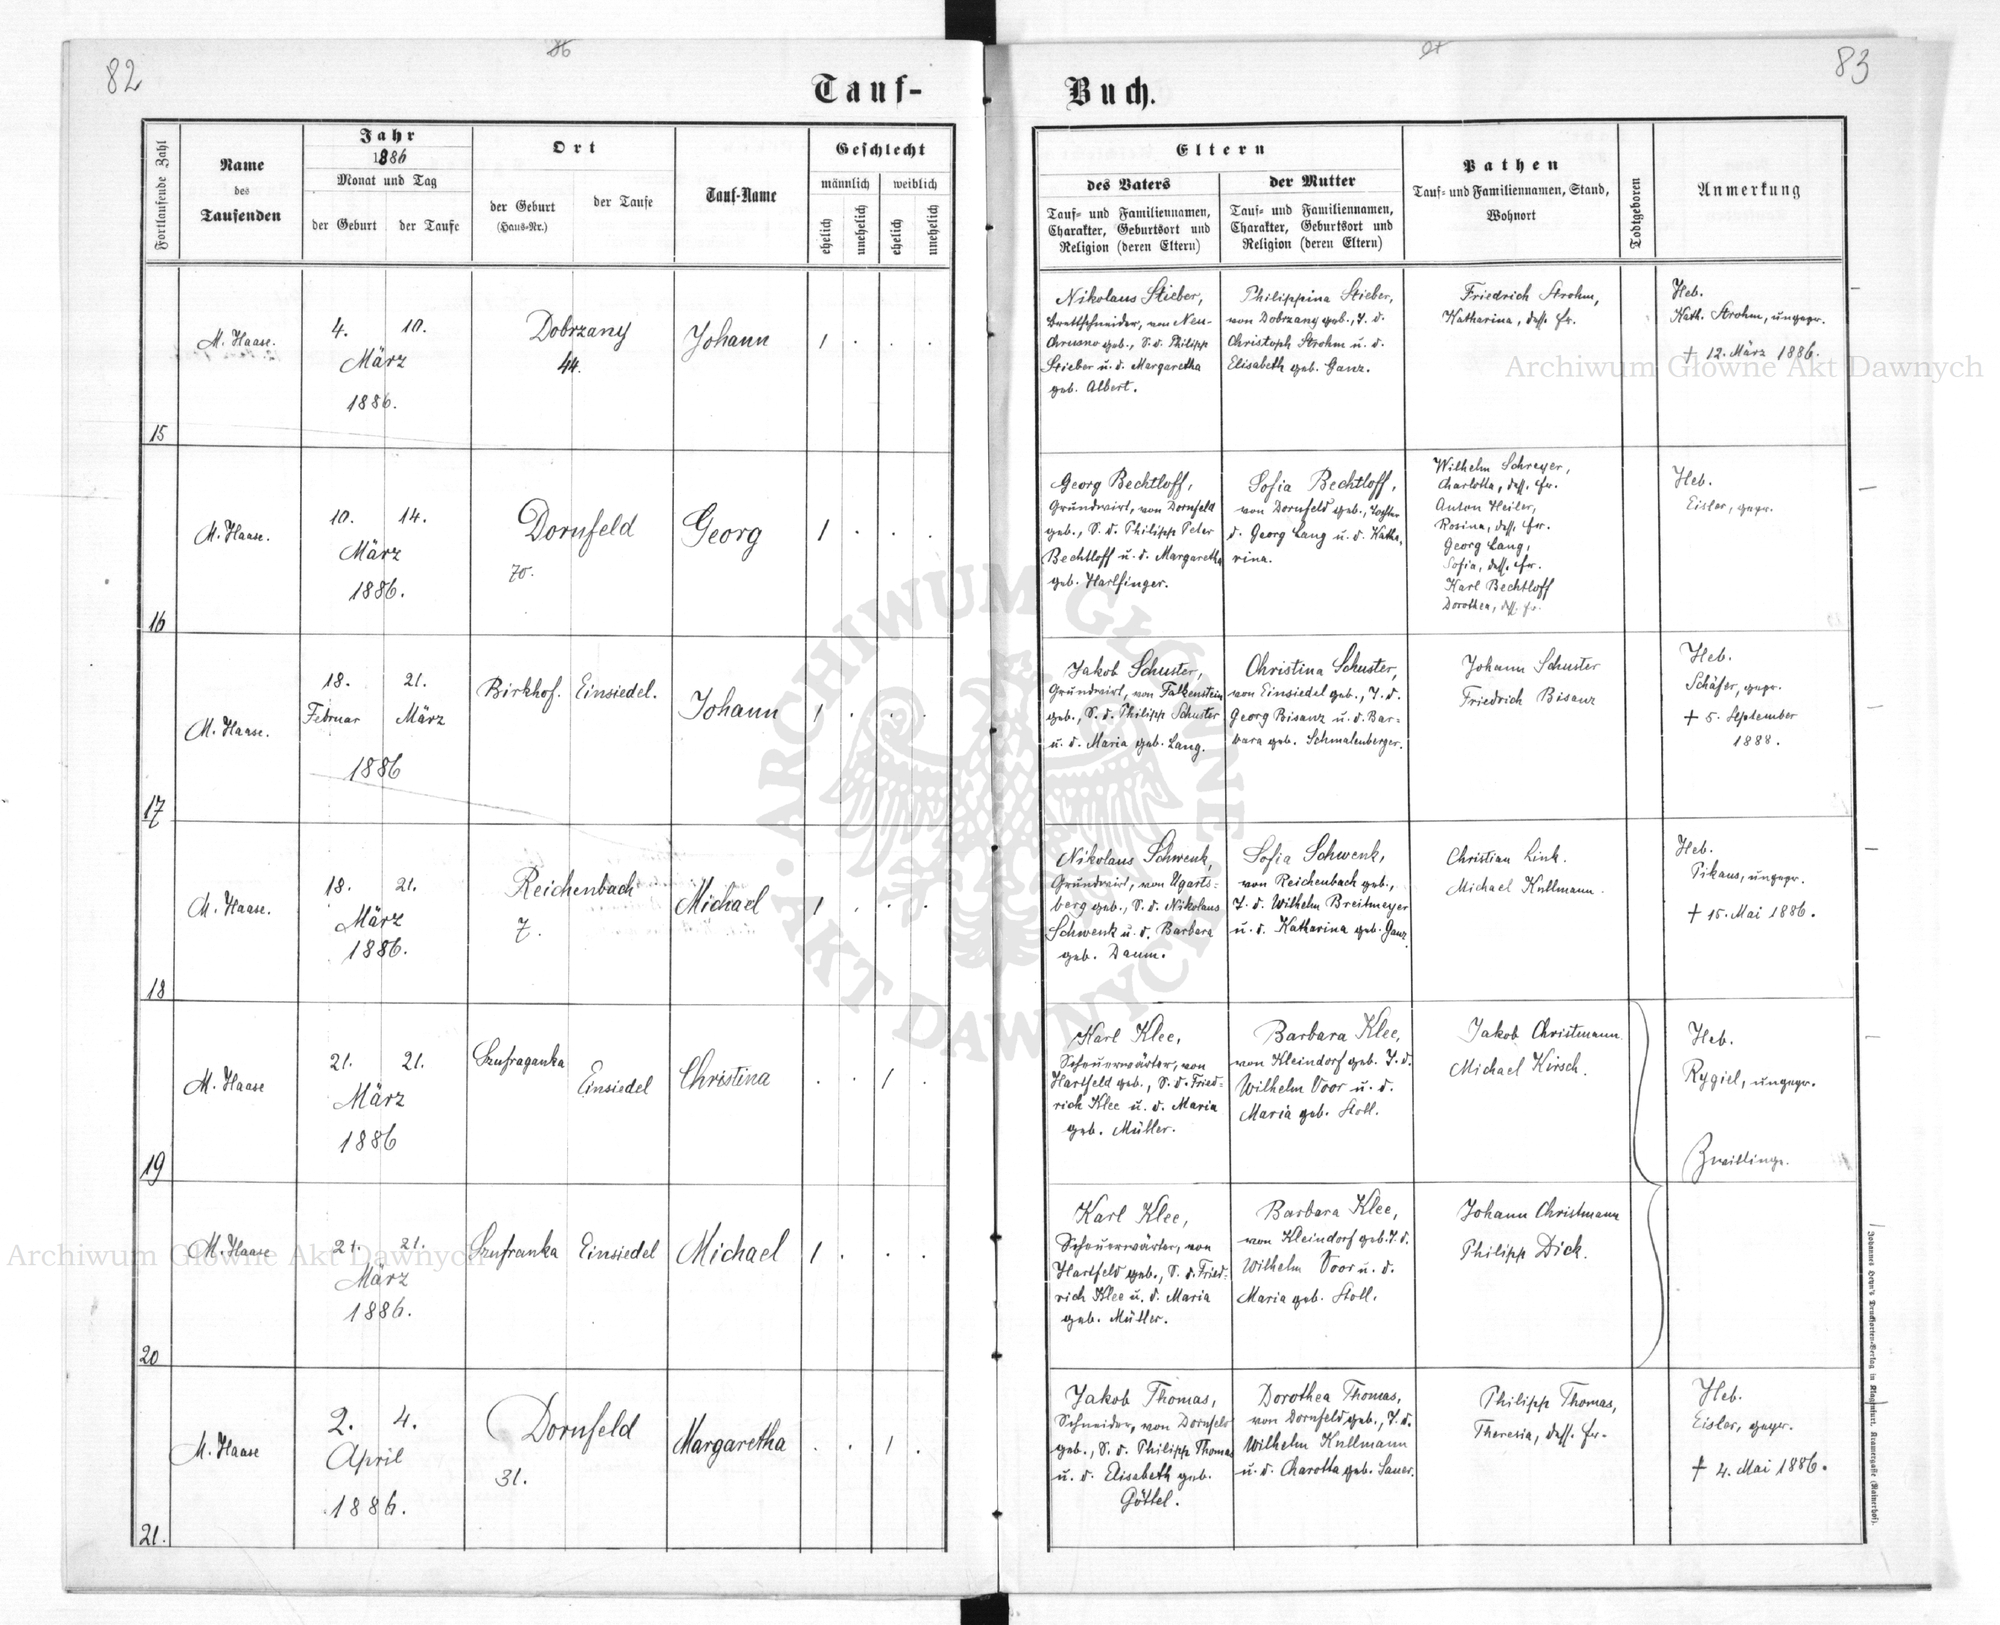 82
86
Tauf-
Buch.
87
83
Fortlaufende Zahl
Name
des
Taufenden
Jahr
1886
Monat und Tag
der Geburt
der Taufe
Ort
der Geburt
(Haus-Nr.)
der Taufe
Tauf-Name
Geschlecht
männlich
weiblich
ehelich
unehelich
ehelich
unehelich
Eltern
des Vaters
Tauf- und Familiennamen,
Charakter, Geburtsort und
Religion (deren Eltern)
der Mutter
Tauf- und Familiennamen,
Charakter, Geburtsort und
Religion (deren Eltern)
Pathen
Tauf- und Familiennamen, Stand,
Wohnort
Todtgeboren
Anmerkung
15
M. Haase.
4. 10.
März
1886.
Dobrzany
44.
Johann
1 . . .
Nikolaus Stieber,
Brettschneider, von Neu-
Chrusno geb., S. d. Philipp
Stieber u. d. Margaretha
geb. Albert.
Philippina Stieber,
von Dobrzany geb., T. d.
Christoph Strohm u. d.
Elisabeth geb. Ganz.
Friedrich Strohm,
Katharina, dess. Fr.
Heb.
Kath. Strohm, ungepr.
† 12. März 1886.
16
M. Haase.
10. 14.
März
1886.
Dornfeld
70.
Georg
1 . . .
Georg Bechtloff,
Grundwirt, von Dornfeld
geb., S. d. Philipp Peter
Bechtloff u. d. Margaretha
geb. Harlfinger.
Sofia Bechtloff,
von Dornfeld geb., Tochter
d. Georg Lang u. d. Katha-
rina.
Wilhelm Schreyer,
Charlotta, dess. Fr.
Anton Heiler,
Rosina, dess. Fr.
Georg Lang,
Sofia, dess. Fr.
Karl Bechtloff
Dorothea, dess. Fr.
Heb.
Eisler, gepr.
17
M. Haase.
18. 21.
Februar März
1886
Birkhof. Einsiedel.
Johann
1 . . .
Jakob Schuster,
Grundwirt, von Falkenstein
geb., S. d. Philipp Schuster
u. d. Maria geb. Lang.
Christina Schuster,
von Einsiedel geb., T. d.
Georg Bisanz u. d. Bar-
bara geb. Schmalenberger.
Johann Schuster
Friedrich Bisanz
Heb.
Schäfer, gepr.
† 5. September
1888.
18
M. Haase.
18. 21.
März
1886.
Reichenbach
7.
Michael
1 . . .
Nikolaus Schwenk,
Grundwirt, von Ugarts-
berg geb., S. d. Nikolaus
Schwenk u. d. Barbara
geb. Daum.
Sofia Schwenk,
von Reichenbach geb.,
T. d. Wilhelm Breitmeyer
u. d. Katharina geb. Ganz.
Christian Link.
Michael Kullmann.
Heb.
Pikaus, ungepr.
† 15. Mai 1886.
19
M. Haase
21. 21.
März
1886
Szufraganka
Einsiedel
Christina
. . 1 .
Karl Klee,
Scheuerwärter, von
Hartfeld geb., S. d. Fried-
rich Klee u. d. Maria
geb. Müller.
Barbara Klee,
von Kleindorf geb. T. d.
Wilhelm Voor u. d.
Maria geb. Stoll.
Jakob Christmann.
Michael Kirsch.
Heb.
Rygiel, ungepr.
Zwillinge.
20
M. Haase
21. 21.
März
1886.
Szufranka Einsiedel
Michael
1 . . .
Karl Klee,
Scheuerwärter, von
Hartfeld geb., S. d. Fried-
rich Klee u. d. Maria
geb. Müller.
Barbara Klee,
von Kleindorf geb. T. d.
Wilhelm Voor u. d.
Maria geb. Stoll.
Johann Christmann
Philipp Dick.
21.
M. Haase
2. 4.
April
1886.
Dornfeld
31.
Margaretha
. . 1 .
Jakob Thomas,
Schneider, von Dornfeld
geb., S. d. Philipp Thomas
u. d. Elisabeth geb.
Göttel.
Dorothea Thomas,
von Dornfeld geb., T. d.
Wilhelm Kullmann
u. d. Charotta geb. Sauer.
Philipp Thomas,
Theresia, dess. Fr.
Heb.
Eisler, gepr.
† 4. Mai 1886.
Johannes Heyn's Drucksorten-Verlag in Klagenfurt, Kramergasse (Rainerhof).
Archiwum Główne Akt Dawnych
ARCHIWUM GŁÓWNE · AKT DAWNYCH ·
Archiwum Główne Akt Dawnych